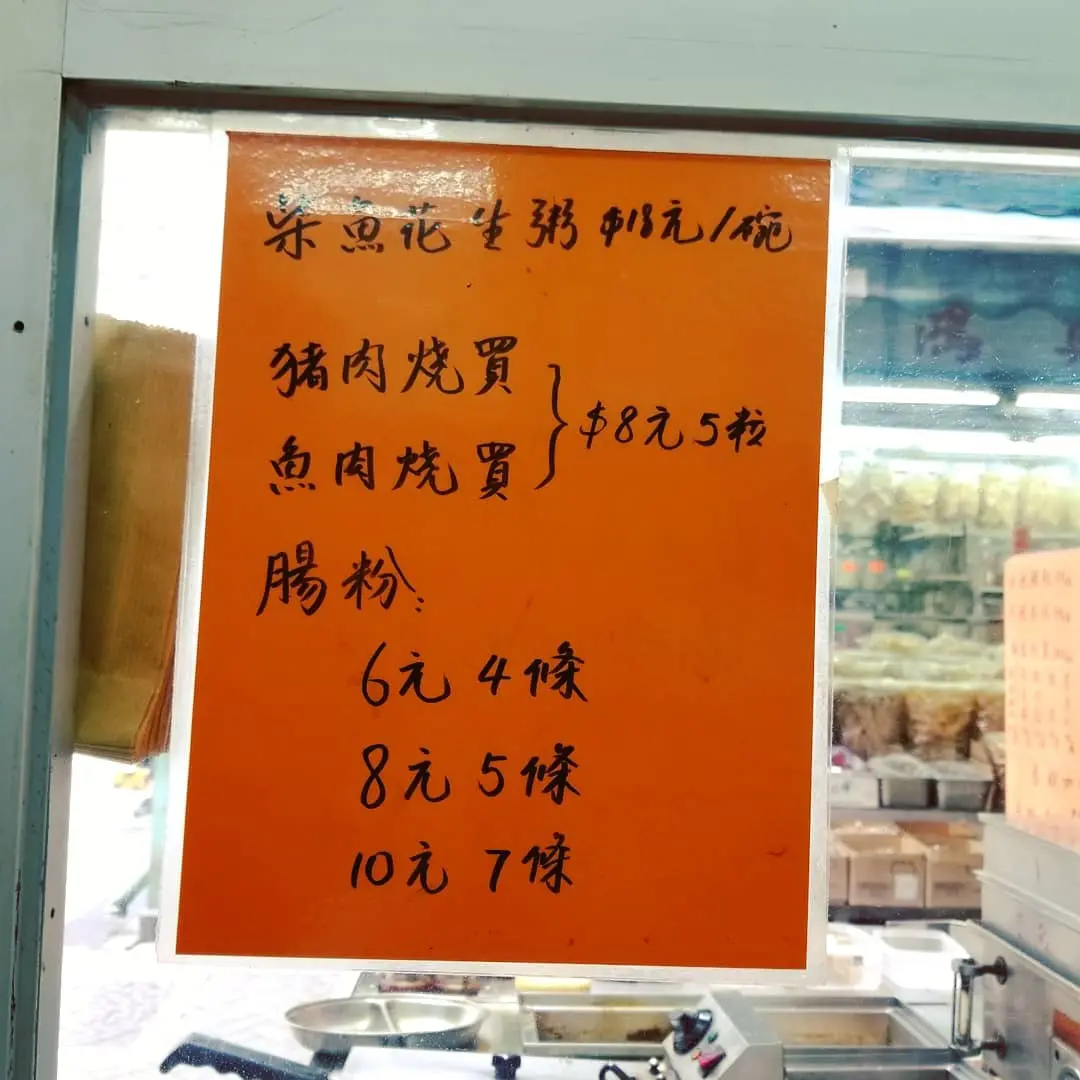 柴魚花生粥 $18元/碗
猪肉燒買
魚肉燒買
} $8元5粒
腸粉:
6元 4條
8元 5條
10元 7條